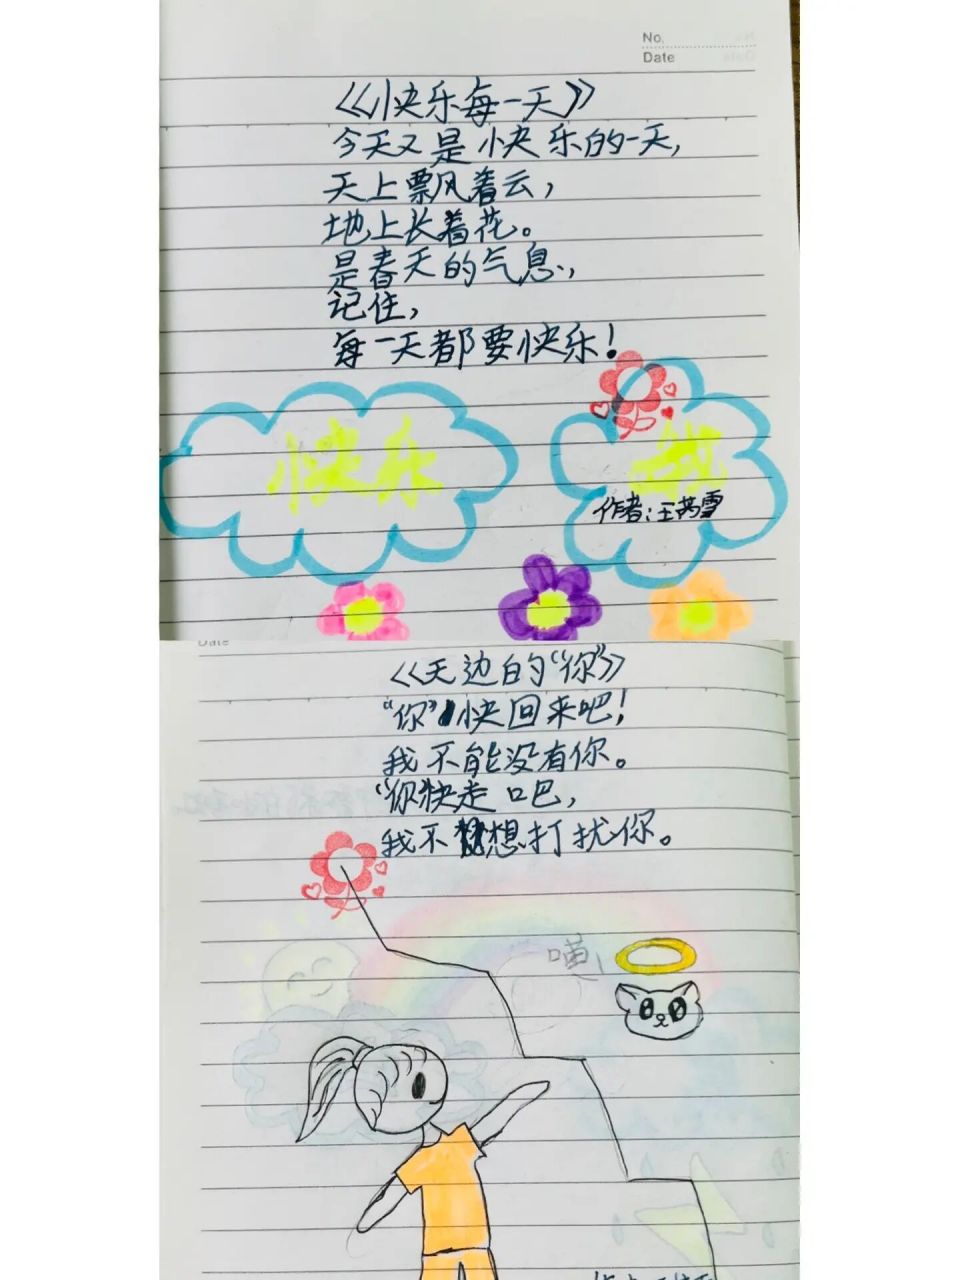 No.
Date
《快乐每一天》
今天又是快乐的一天,
天上飘着云,
地上长着花。
是春天的气息,
记住,
每一天都要快乐!
快乐
我
作者:王芮雪
Date
《天边的“你”》
“你”快回来吧!
我不能没有你。
“你快走吧,
我不想打扰你。
喵!